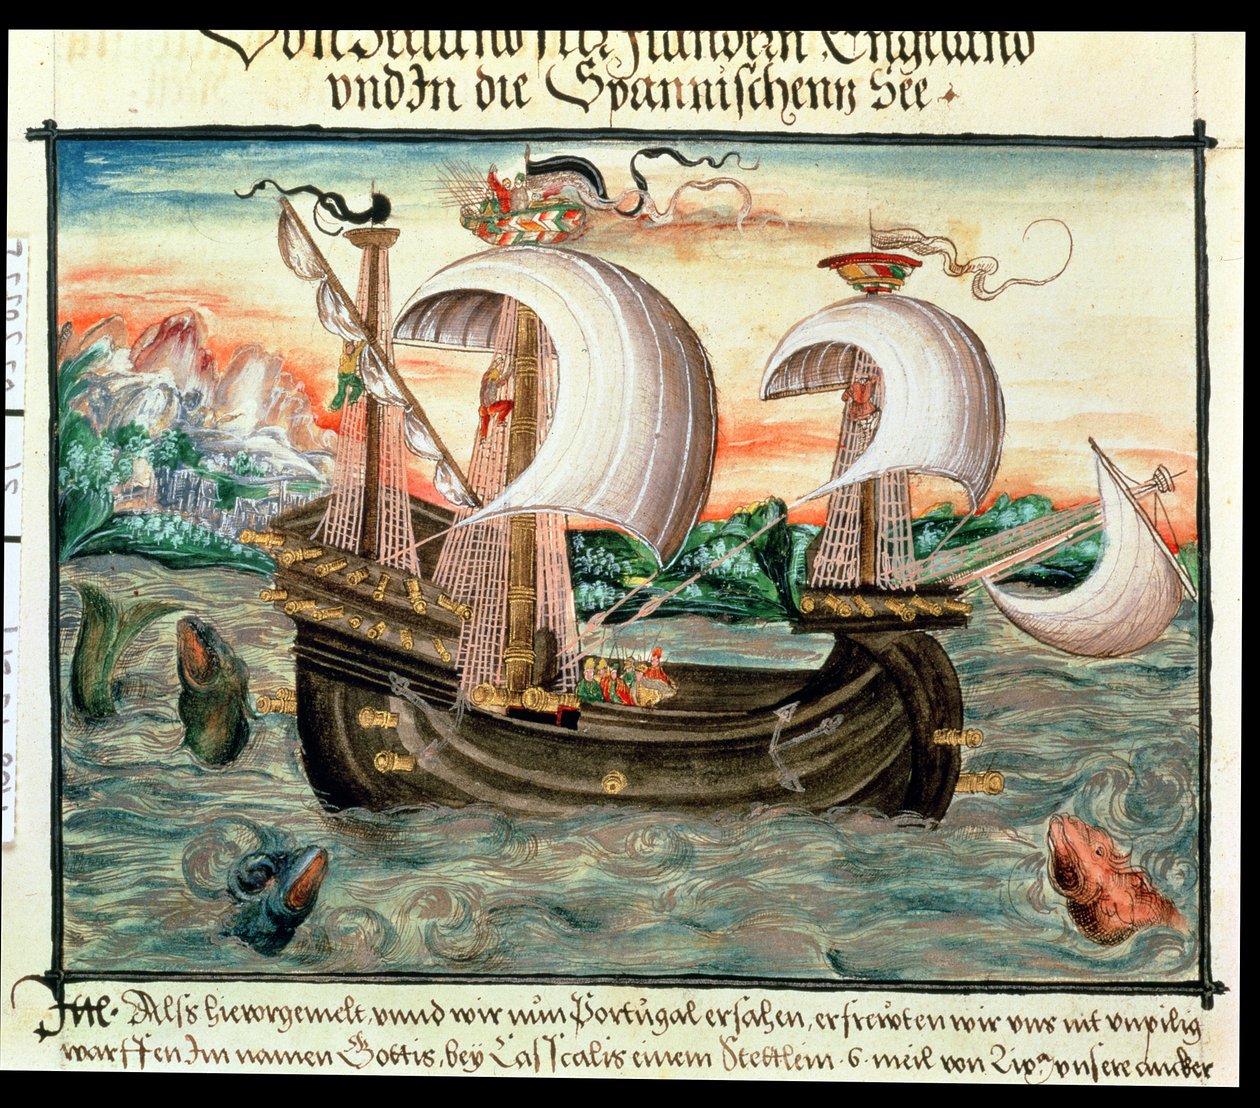 Von Seeland sitz Flandern Engeland
vnd In die Spannischenn See
Itel. Alls hieuorgemelt, vnnd wir nŭn Portŭgal ersahen, erfreŵten wir vns nit vnpilig
warffen Im namen Gottis, bey Casscalis einem Stettlein .6. meil von Lixa vnsere ancker